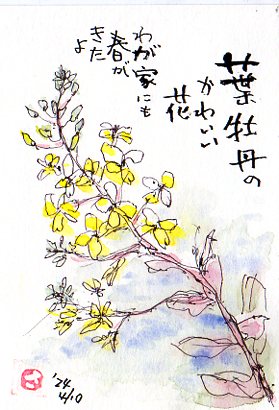 葉牡丹の
かわいい
花
わが家にも
春が
きた
よ
'24
4/10